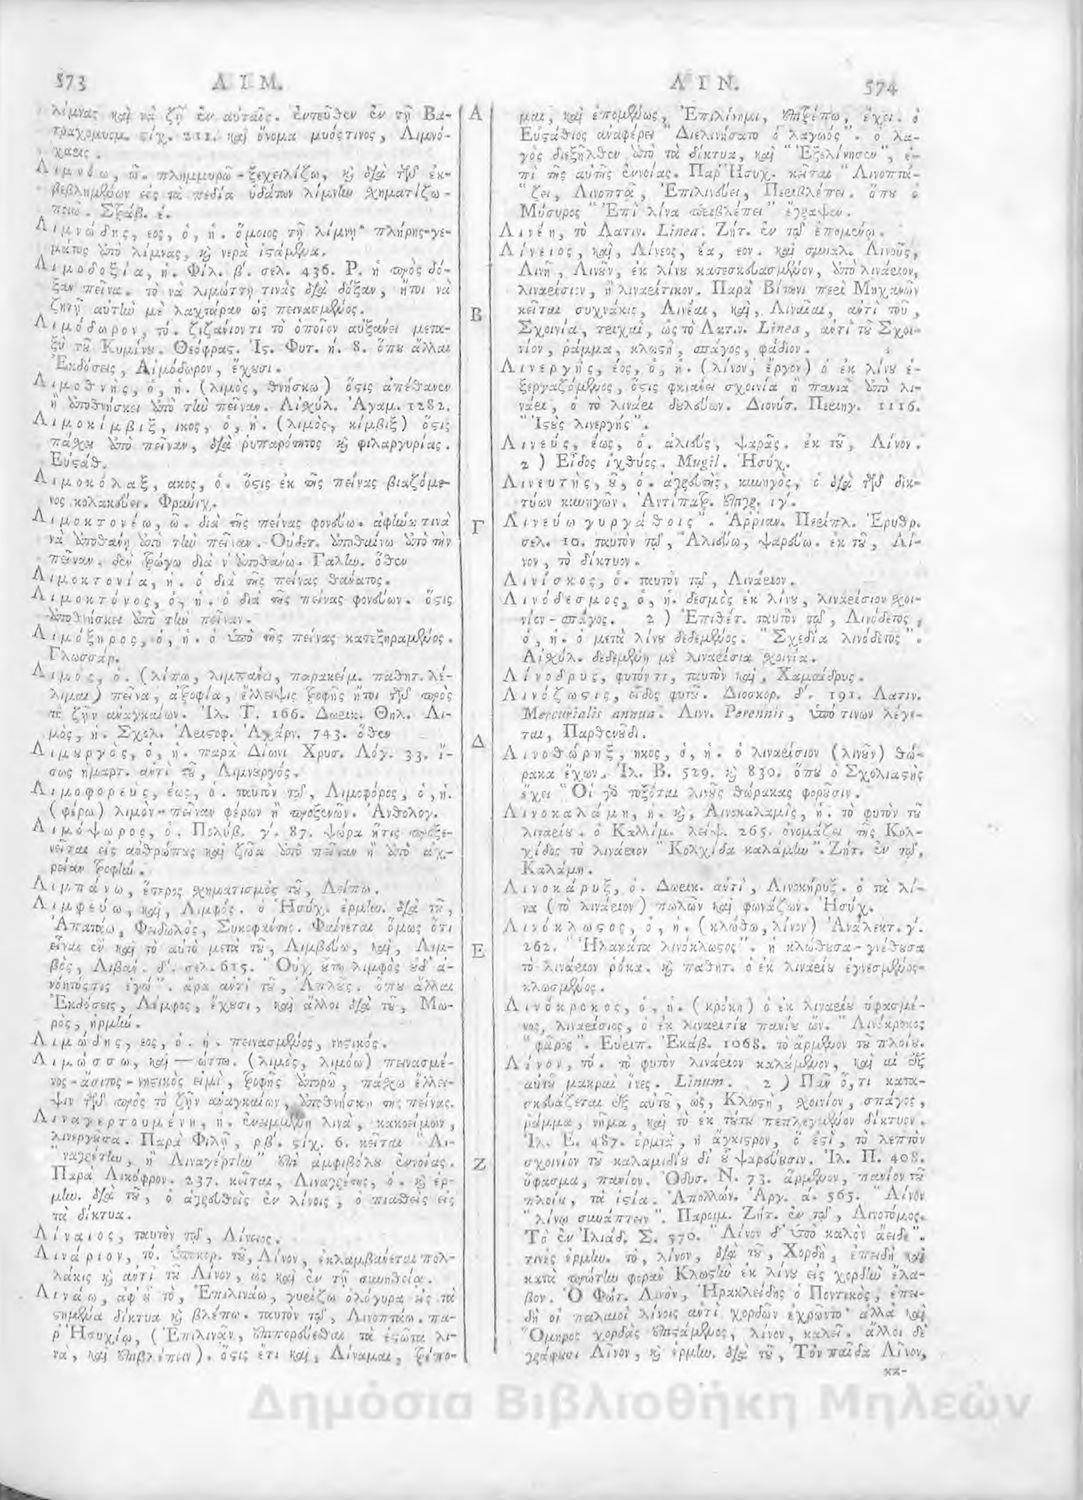 573 ΛΙΜ.
λίμνας καὶ νὰ ζῇ ἐν αὐταῖς. ἐντεῦθεν ἐν τῇ Βα-
τραχομυομ. στίχ. 211. καὶ ὄνομα μυός τινος, Λιμνό-
χαρις.
Λιμνόω, ῶ. πλημμυρῶ - ξεχειλίζω, καὶ διὰ τῶν ἐκ-
βεβλημένων εἰς τὰ πεδία ὑδάτων λίμνην σχηματίζω -
ποιῶ. Στράβ. έ.
Λιμνώδης, εος, ὁ, ἡ. ὅμοιος τῇ λίμνῃ· πλήρης-γε-
μάτος ἀπὸ λίμνας, καὶ νερὰ ἱστάμενα.
Λιμοδοξία, ἡ. Φίλ. β'. σελ. 436. P. ἡ πρὸς δό-
ξαν πεῖνα. τὸ νὰ λιμώττῃ τινὰς διὰ δόξαν, ἤτοι νὰ
ζητῇ αὐτὴν μὲ λαχτάραν ὡς πεινασμένος.
Λιμόδωρον, τό. ζιζάνιόν τι τὸ ὁποῖον αὐξάνει μετα-
ξὺ τοῦ Κυμίνου. Θεόφρας. Ἱς. Φυτ. ή. 8. ὅπου ἄλλαι
Ἐκδόσεις, Αἱμόδωρον, ἔχουσι.
Λιμοθνής, ὁ, ἡ. (λιμός, θνήσκω) ὅστις ἀπέθανεν
ἢ ἀποθνήσκει ἀπὸ τὴν πεῖναν. Αἰσχύλ. Ἀγαμ. 1282.
Λιμοκίμβιξ, ικος, ὁ, ἡ. (λιμός, κίμβιξ) ὅστις
πάσχει ἀπὸ πεῖναν, διὰ ῥυπαρότητος καὶ φιλαργυρίας.
Εὐστάθ.
Λιμοκόλαξ, ακος, ὁ. ὅστις ἐκ τῆς πείνας βιαζόμε-
νος κολακεύει. Φρυνιχ.
Λιμοκτονέω, ῶ. διὰ τῆς πείνας φονεύω. ἀφίνω τινὰ
νὰ ἀποθάνῃ ἀπὸ τὴν πεῖναν. Οὐδετ. ἀποθαίνω ἀπὸ τὴν
πεῖναν. δὲν τρώγω διὰ ν' ἀποθάνω. Γαλην. ὅθεν
Λιμοκτονία, ἡ. ὁ διὰ τῆς πείνας θάνατος.
Λιμοκτόνος, ὁ, ἡ. ὁ διὰ τῆς πείνας φονεύων. ὅστις
ἀποθνήσκει ἀπὸ τὴν πεῖναν.
Λιμόξηρος, ὁ, ἡ. ὁ ὑπὸ τῆς πείνας κατεξηραμμένος.
Γλωσσάρ.
Λιμός, ὁ. (λίπω, λιμπάνω, παρακείμ. παθητ. λέ-
λιμαι) πεῖνα, ἀτροφία, ἔλλειψις τροφῆς ἤτοι τῶν πρὸς
τὸ ζῆν ἀναγκαίων. Ἰλ. Τ. 166. Δωρικ. Θηλ. Λι-
μὸς, ἡ. Σχολ. Ἀριστοφ. Ἀχάρν. 743. ὅθεν
Λιμουργός, ὁ, ἡ. παρὰ Δίωνι Χρυσ. Λόγ. 33. ἴ-
σως ἡμαρτ. ἀντὶ τοῦ, Λιμνουργός.
Λιμοφορεύς, έως, ὁ. ταυτὸν τῷ, Λιμοφόρος, ὁ, ἡ.
(φέρω) λιμὸν - πεῖναν φέρων ἢ προξενῶν. Ἀνθολογ.
Λιμόψωρος, ὁ. Πολύβ. γ'. 87. ψώρα ἥτις προξε-
νεῖται εἰς ἀνθρώπους καὶ ζῶα ἀπὸ πεῖναν ἢ ἀπὸ ἀχ-
ρείαν τροφήν.
Λιμπάνω, ἕτερος σχηματισμὸς τοῦ, Λείπω.
Λιμφεύω, καὶ, Λιμφός. ὁ Ἡσύχ. ἑρμην. διὰ τοῦ,
Ἀπατάω, Φειδωλός, Συκοφάντης. Φαίνεται ὅμως ὅτι
εἶναι ἓν καὶ τὸ αὐτὸ μετὰ τοῦ, Λιμβεύω, καὶ, Λιμ-
βός, Λιβαν. δ'. σελ. 615. "Οὐχ οὕτω λιμφὸς οὐδ' ἀ-
νόητός τις ἐγώ". ἄρα ἀντὶ τοῦ, Ἁπλοῦς. ὅπου ἄλλαι
Ἐκδόσεις, Λέμφος, ἔχουσι, καὶ ἄλλοι διὰ τοῦ, Μω-
ρός, ἡρμην.
Λιμώδης, εος, ὁ. ἡ. πεινασμένος, νηστικός.
Λιμώσσω, καὶ — ώττω. (λιμός, λιμόω) πεινασμέ-
νος - ἄσιτος - νηστικὸς εἰμὶ, τροφῆς ἀπορῶ, πάσχω ἔλλει-
ψιν τῶν πρὸς τὸ ζῆν ἀναγκαίων, ἀποθνήσκω τῆς πείνας.
Λιναγερτουμένη, ἡ. ἐνειμένη λινᾶ, κακοείμων,
λινεργοῦσα. Παρὰ Φιλῇ, ρβ'. στίχ. 6. κεῖται "Λι-
ναγρέτην, ἢ Λιναγέρτην" ἐπὶ ἀμφιβόλου ἐννοίας.
Παρὰ Λυκόφρον. 237. κεῖται, Λιναγρέτης, ὁ. καὶ ἑρ-
μην. διὰ τοῦ, ὁ ἀγρευθεὶς ἐν λίνοις, ὁ πιασθεὶς εἰς
τὰ δίκτυα.
Λίναιος, ταυτὸν τῷ, Λίνειος.
Λινάριον, τό. ὑποκορ. τοῦ, Λίνον, ἐκλαμβάνεται πολ-
λάκις καὶ ἀντὶ τοῦ Λίνον, ὡς καὶ ἐν τῇ συνηθείᾳ.
Λινάω, ἀφ' οὗ τὸ, Ἐπιλινάω, γυρίζω ὁλόγυρα εἰς τὰ
στημένα δίκτυα καὶ βλέπω. ταυτὸν τῷ, Λινοπτάω. πα-
ρ' Ἡσυχίῳ, (Ἐπιλινᾶν, ἐπιπορεύεσθαι τὰ ἑστῶτα λί-
να, καὶ ἐπιβλέπειν). ὅστις ἔτι καὶ, Λίναμαι, τρέπο-
Α
Β
Γ
Δ
Ε
Ζ
ΛΙΝ. 574
μαι, καὶ ἑπομένως, Ἐπιλίνημι, ἐπιτρέπω, ἔχει. ὁ
Εὐστάθιος ἀναφέρει "Διελινήσατο ὁ λαγωὸς". ὁ λα-
γὸς διεξῆλθεν ἀπὸ τὰ δίκτυα, καὶ "Ἐξελίνησεν", ἐ-
πὶ τῆς αὐτῆς ἐννοίας. Παρ' Ἡσυχ. κεῖται "Λινοπτά-
"ζει, Λινοπτᾷ, Ἐπιλινεύει, Περιβλέπει. ὅπου ὁ
Μύσουρος "Ἐπὶ λίνα περιβλέπει" ἔγραψεν.
Λινέη, τὸ Λατιν. Linea. Ζήτ. ἐν τῷ ἑπομένῳ.
Λίνειος, καὶ, Λίνεος, έα, εον. καὶ συναλ. Λινοῦς,
Λινῆ, Λινοῦν, ἐκ λίνου κατεσκευασμένον, ἀπὸ λινάριον,
λιναρίσιον, ἢ λιναρίτικον. Παρὰ Βίτωνι περὶ Μηχανῶν
κεῖται συχνάκις, Λινέαι, καὶ, Λιναῖαι, ἀντὶ τοῦ,
Σχοινία, τριχιαὶ, ὡς τὸ Λατιν. Linea, ἀντὶ τοῦ Σχοι-
νίον, ῥάμμα, κλωστὴ, σπάγος, φάδιον.
Λινεργής, έος, ὁ, ἡ. (λίνον, ἔργον) ὁ ἐκ λίνου ἐ-
ξεργαζόμενος, ὅστις φκιάνει σχοινία ἢ πανία ἀπὸ λι-
νάρι, ὁ τὸ λινάρι δουλεύων. Διονύσ. Περιηγ. 1116.
"Ἱστοὺς λινεργής".
Λινεύς, έως, ὁ. ἁλιεὺς, ψαρᾶς. ἐκ τοῦ, Λίνον.
2) Εἶδος ἰχθύος. Mugil. Ἡσύχ.
Λινευτής, οῦ, ὁ. ἀγρευτὴς, κυνηγὸς, ὁ διὰ τῶν δικ-
τύων κυνηγῶν. Ἀντίπατρ. ἐπιγρ. ιγ'.
Λινεύω γυργάθοις". Ἀρριαν. Περίπλ. Ἐρυθρ.
σελ. 10. ταυτὸν τῷ, "Ἁλιεύω, ψαρεύω. ἐκ τοῦ, Λί-
νον, τὸ δίκτυον.
Λινίσκος, ὁ. ταυτὸν τῷ, Λινάριον.
Λινόδεσμος, ὁ, ἡ. δεσμὸς ἐκ λίνου, λιναρίσιον σχοι-
νίον - σπάγος. 2) Ἐπιθετ. ταυτὸν τῷ, Λινόδετος,
ὁ, ἡ. ὁ μετὰ λίνου δεδεμένος. "Σχεδία λινόδετος".
Αἰσχύλ. δεδεμένη μὲ λιναρίσια σχοινία.
Λινόδρυς, φυτόν τι, ταυτὸν καὶ, Χαμαίδρυς.
Λινόζωστις, εἶδος φυτοῦ. Διοσκορ. δ'. 191. Λατιν.
Mercurialis annua. Λινν. Perennis, ὑπό τινων λέγε-
ται, Παρθενούδι.
Λινοθώρηξ, ηκος, ὁ, ἡ. ὁ λιναρίσιον (λινοῦν) θώ-
ρακα ἔχων. Ἰλ. Β. 529. καὶ 830. ὅπου ὁ Σχολιαστὴς
ἔχει "Οἱ γὰρ τοξόται λινοῦς θώρακας φοροῦσιν.
Λινοκαλάμη, ἡ. καὶ, Λινοκαλαμὶς, ἡ. τὸ φυτὸν τοῦ
λιναρίου. ὁ Καλλίμ. λείψ. 265. ὀνομάζει τῆς Κολ-
χίδος τὸ λινάριον "Κολχίδα καλάμην". Ζήτ. ἐν τῷ,
Καλάμη.
Λινοκάρυξ, ὁ. Δωρικ. ἀντὶ, Λινοκήρυξ. ὁ τὰ λί-
να (τὸ λινάριον) πωλῶν καὶ φωνάζων. Ἡσύχ.
Λινόκλωστος, ὁ, ἡ. (κλώθω, λίνον) Ἀναλεκτ. γ'.
262. "Ἠλακάτα λινόκλωστος". ἡ κλώθουσα-γνέθουσα
τὸ λινάριον ῥόκα. καὶ παθητ. ὁ ἐκ λιναρίου ἐγνεσμένος-
κλωσμένος.
Λινόκροκος, ὁ, ἡ. (κρόκη) ὁ ἐκ λιναρίου ὑφασμέ-
νος, λιναρίσιος, ὁ ἐκ λιναρισίου πανίου ὤν. "Λινόκροκος
"φᾶρος". Εὐριπ. Ἑκάβ. 1068. τὸ ἄρμενον τοῦ πλοίου.
Λίνον, τό. τὸ φυτὸν λινάριον καλούμενον, καὶ αἱ ἐξ
αὐτοῦ μακραὶ ἶνες. Linum. 2) Πᾶν ὅ,τι κατα-
σκευάζεται ἐξ αὐτοῦ, ὡς, Κλωστὴ, σχοινίον, σπάγος,
ῥάμμα, νῆμα, καὶ τὸ ἐκ τούτου πεπλεγμένον δίκτυον.
Ἰλ. Ε. 487. ἑρμιὰ, ἢ ἄγκιστρον, ὅ ἐστι, τὸ λεπτὸν
σχοινίον τοῦ καλαμιδίου δι' οὗ ψαρεύουσιν. Ἰλ. Π. 408.
ὕφασμα, πανίον. Ὀδυσ. Ν. 73. ἄρμενον, πανίον τοῦ
πλοίου, τὰ ἱστία. Ἀπολλών. Ἀργ. ά. 565. "Λίνον
"λίνῳ συνάπτειν". Παροιμ. Ζήτ. ἐν τῷ, Λινοτόμος.
Τὸ ἐν Ἰλιάδ. Σ. 570. "Λίνον δ' ὑπὸ καλὸν ἄειδε".
τινὲς ἑρμην. τὸ, λίνον, διὰ τοῦ, Χορδὴ, ἐπειδὴ καὶ
κατὰ πρώτην φορὰν Κλωστὴν ἐκ λίνου εἰς χορδὴν ἔλα-
βον. Ὁ Φώτ. Λινὸν, Ἡρακλείδης ὁ Ποντικὸς, ἐπει-
δὴ οἱ παλαιοὶ λίνοις ἀντὶ χορδῶν ἐχρῶντο· ἀλλὰ καὶ
Ὅμηρος χορδὰς ἐπιστάμενος, λίνον, καλεῖ. ἄλλοι δὲ
γράφουσι Λῖνον, καὶ ἑρμην. διὰ τοῦ, Τὸν παῖδα Λῖνον,
κα-
Δημόσια Βιβλιοθήκη Μηλεών